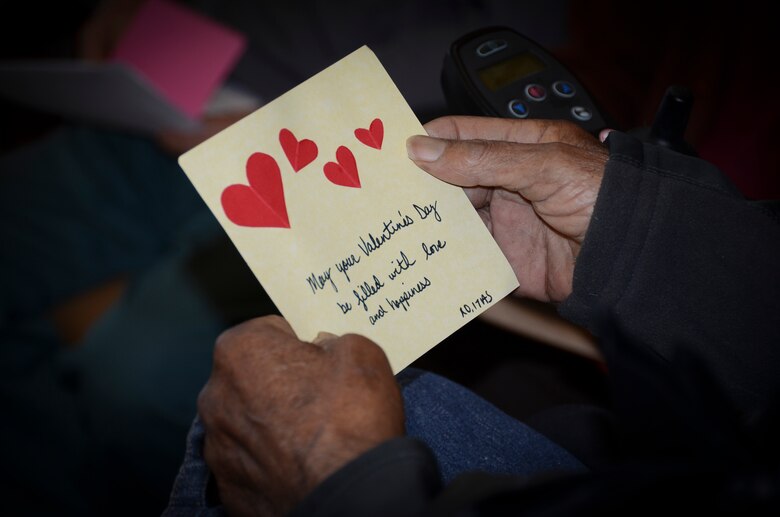 May your Valentine's Day
be filled with love
and happiness